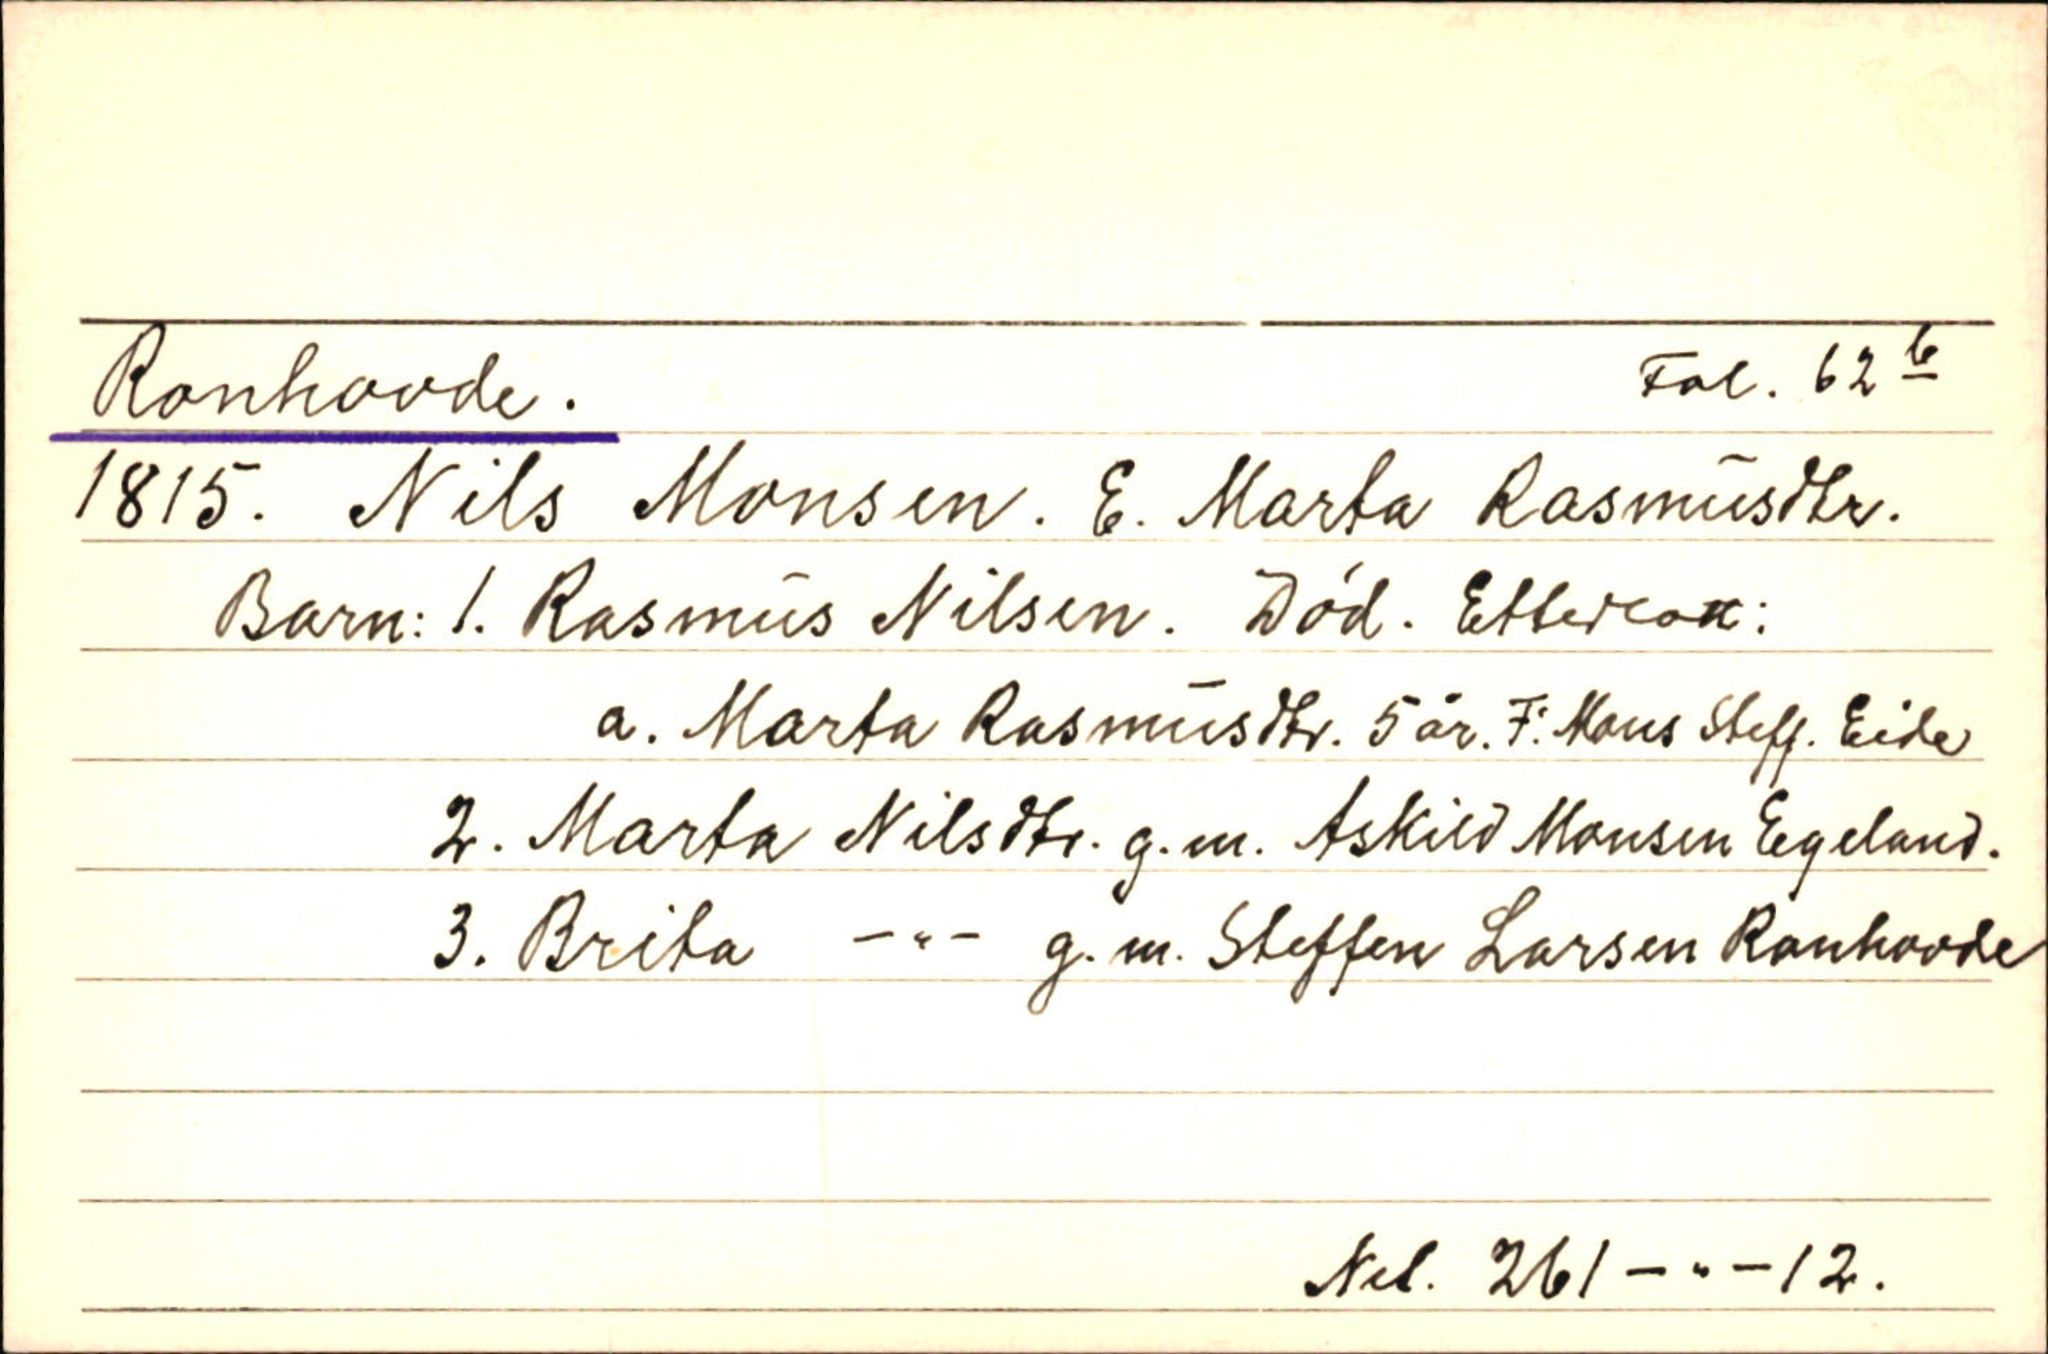 Ronhovde. Fol. 62 b
1815. Nils Monsen. E. Marta Rasmusdtr.
Barn: 1. Rasmus Nilsen. Död. Etterlot:
a. Marta Rasmusdtr. 5 år. F: Mons Steff. Eide
2. Marta Nilsdtr. g.m. Askild Monsen Eegeland.
3. Brita -"- g.m. Steffen Larsen Ronhovde
Nel. 261 -"- 12.